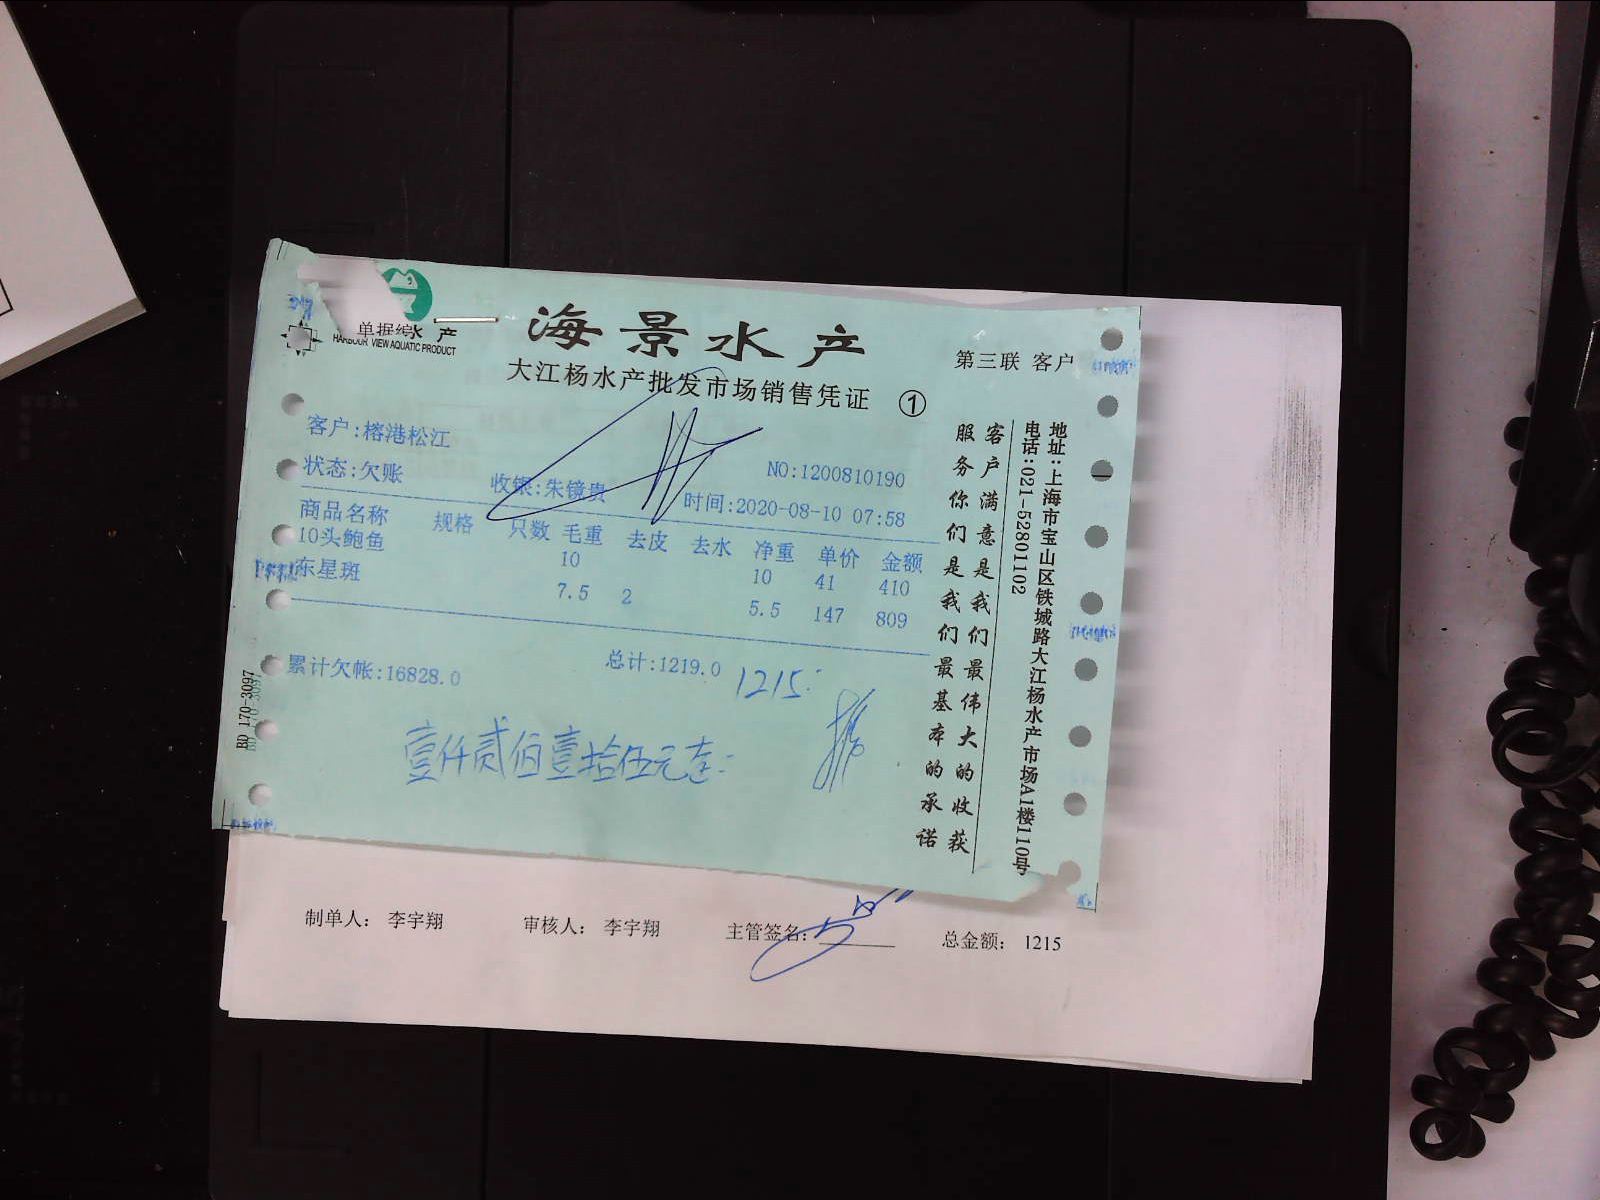 海景水产
单据编
水 产
HARBOUR VIEW AQUATIC PRODUCT
大江杨水产批发市场销售凭证 ①
第三联 客户
客户:榕港松江
状态:欠账 收银:朱镜贵
NO:1200810190
时间:2020-08-10 07:58
商品名称 规格 只数 毛重 去皮 去水 净重 单价 金额
10头鲍鱼 10 10 41 410
东星斑 7.5 2 5.5 147 809
累计欠帐:16828.0 总计:1219.0 1215.
壹仟贰佰壹拾伍元
客户满意是我们最伟大的收获
服务你们是我们最基本的承诺
地址:上海市宝山区铁城路大江杨水产市场A1楼110号
电话:021-52801102
BD 170-3097
制单人: 李宇翔 审核人: 李宇翔 主管签名: 总金额: 1215